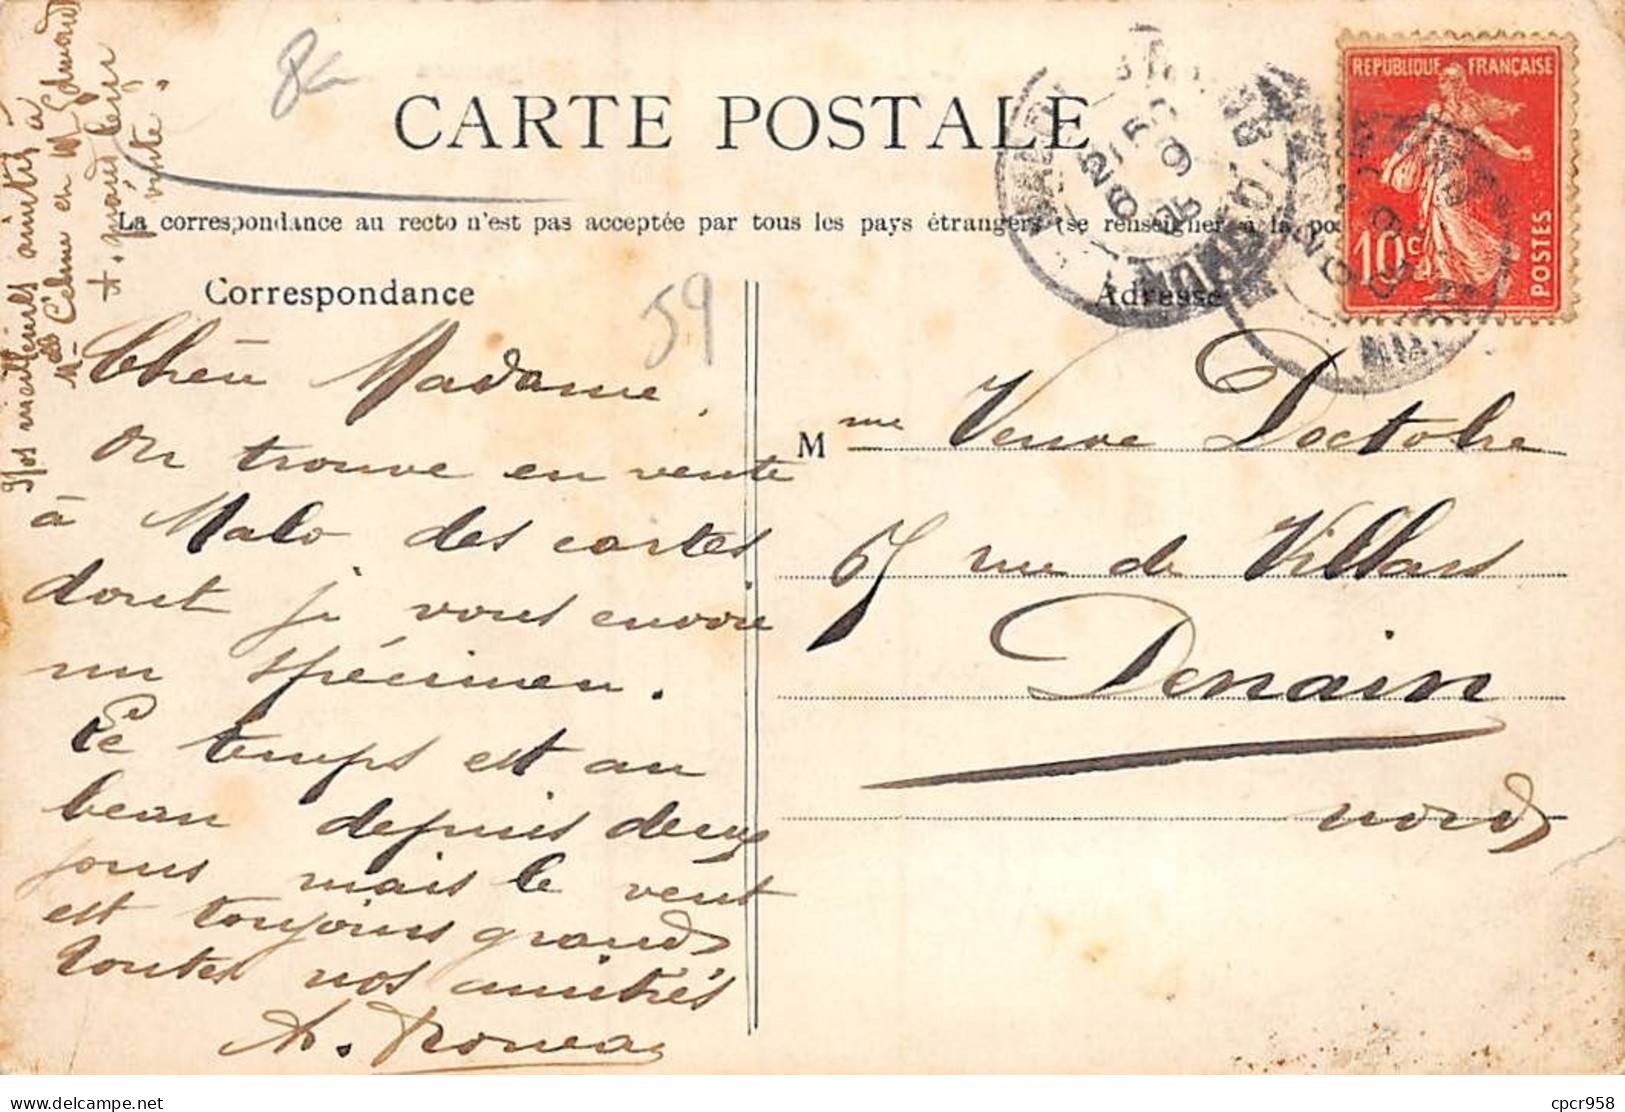 CARTE POSTALE
La correspondance au recto n'est pas acceptée par tous les pays étrangers (se renseigner à la po
Correspondance
Adresse
REPUBLIQUE FRANÇAISE
10c
POSTES
8
59
Madame,
On trouve en vente
à Malo des cartes
dont je vous envoie
un spécimen.
Le temps est au
beau depuis deux
jours mais le vent
est toujours grand
Toutes nos amitiés
Nos meilleures amitiés à
Mme Veuve Doctobre
rue de Villars
Denain
Nord
MALO
NORD
cpcr958